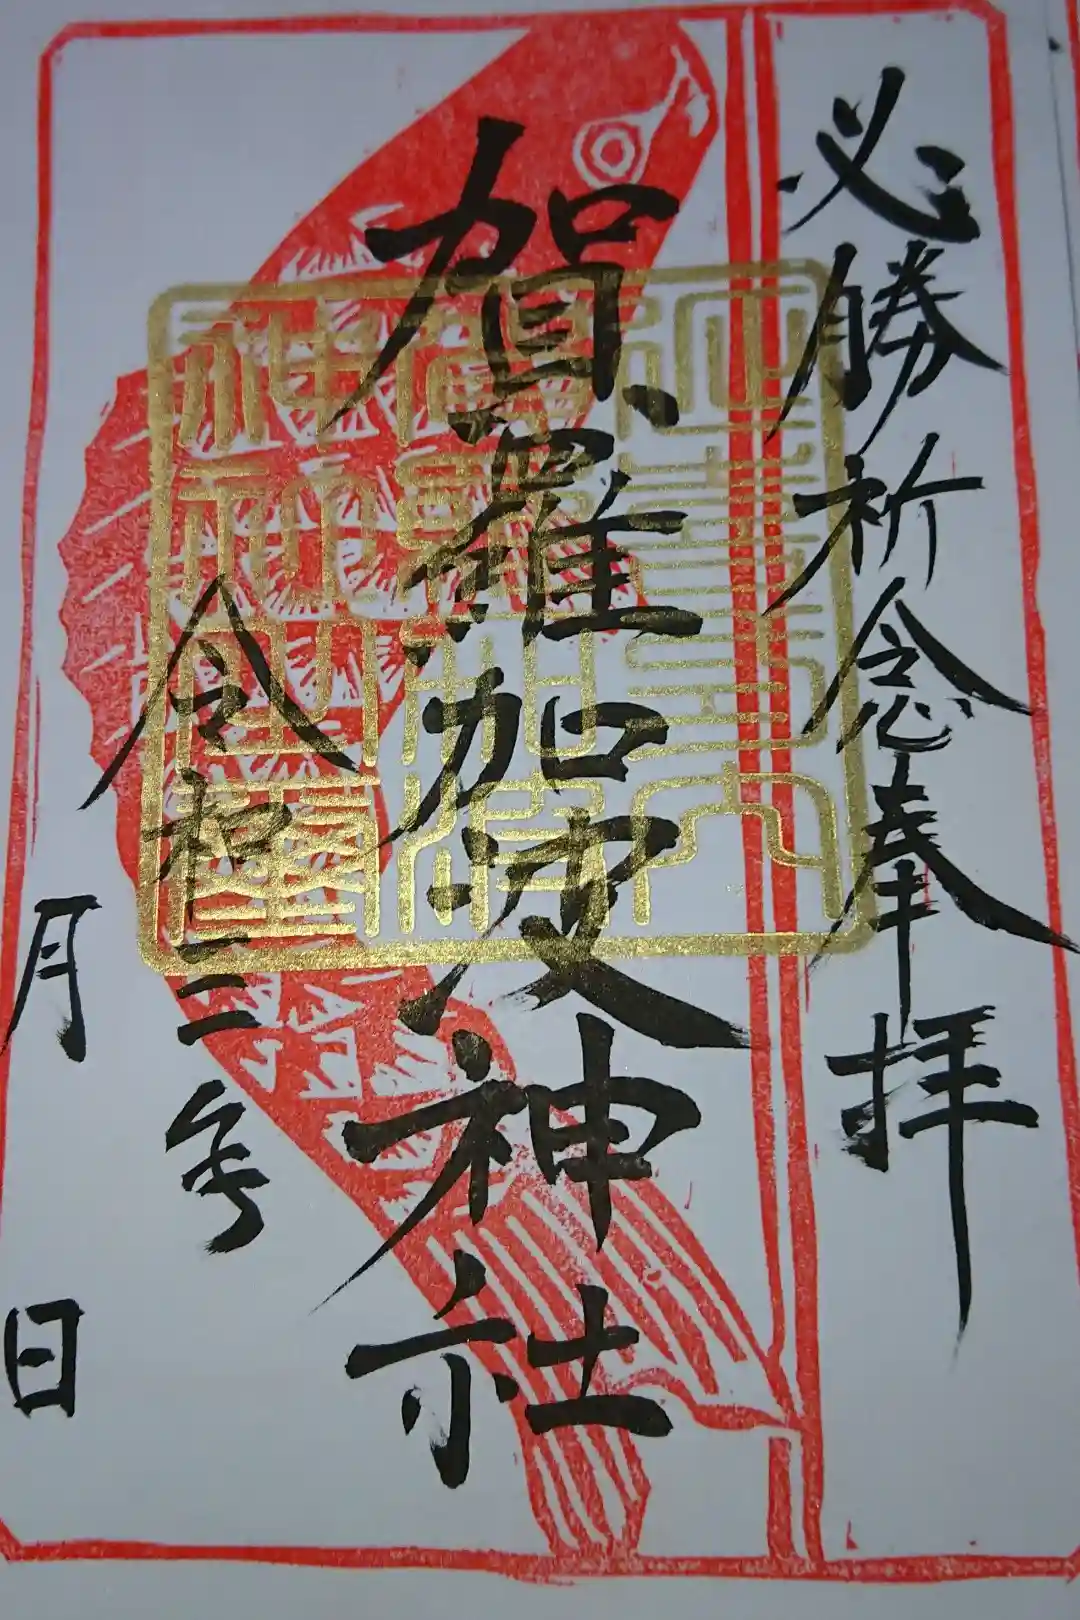 必勝祈念奉拝
賀羅加波神社
令和三年
月　日